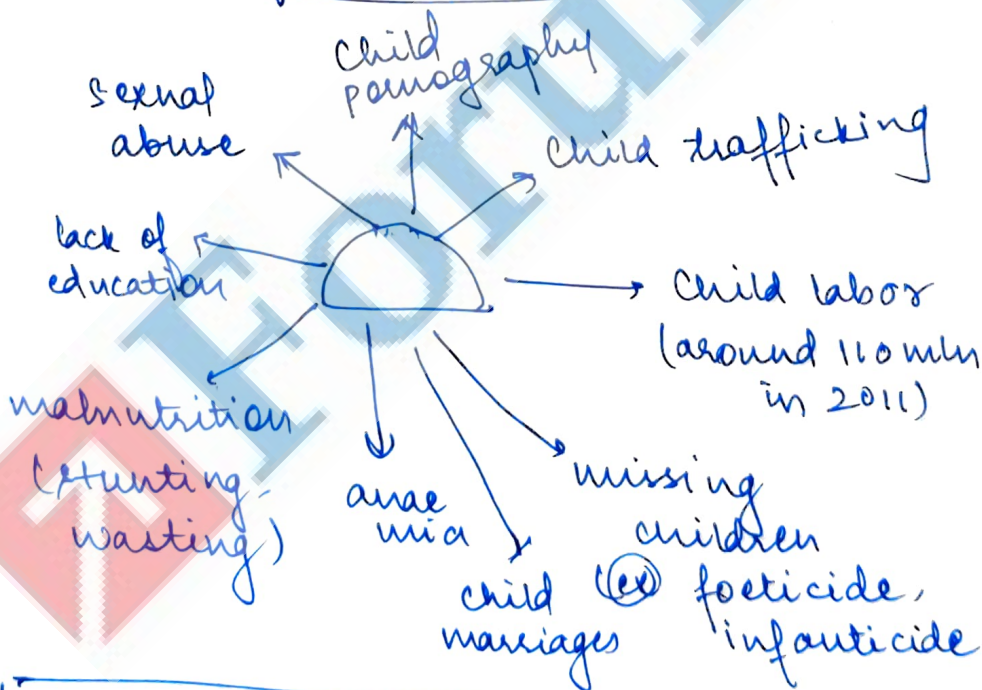 Child
pornography
sexual
abuse
Child trafficking
lack of
education
Child labor
(around 110 mln
in 2011)
malnutrition
(stunting,
wasting)
anae
mia
missing
children
(ex) foeticide,
infanticide
child
marriages
Foru